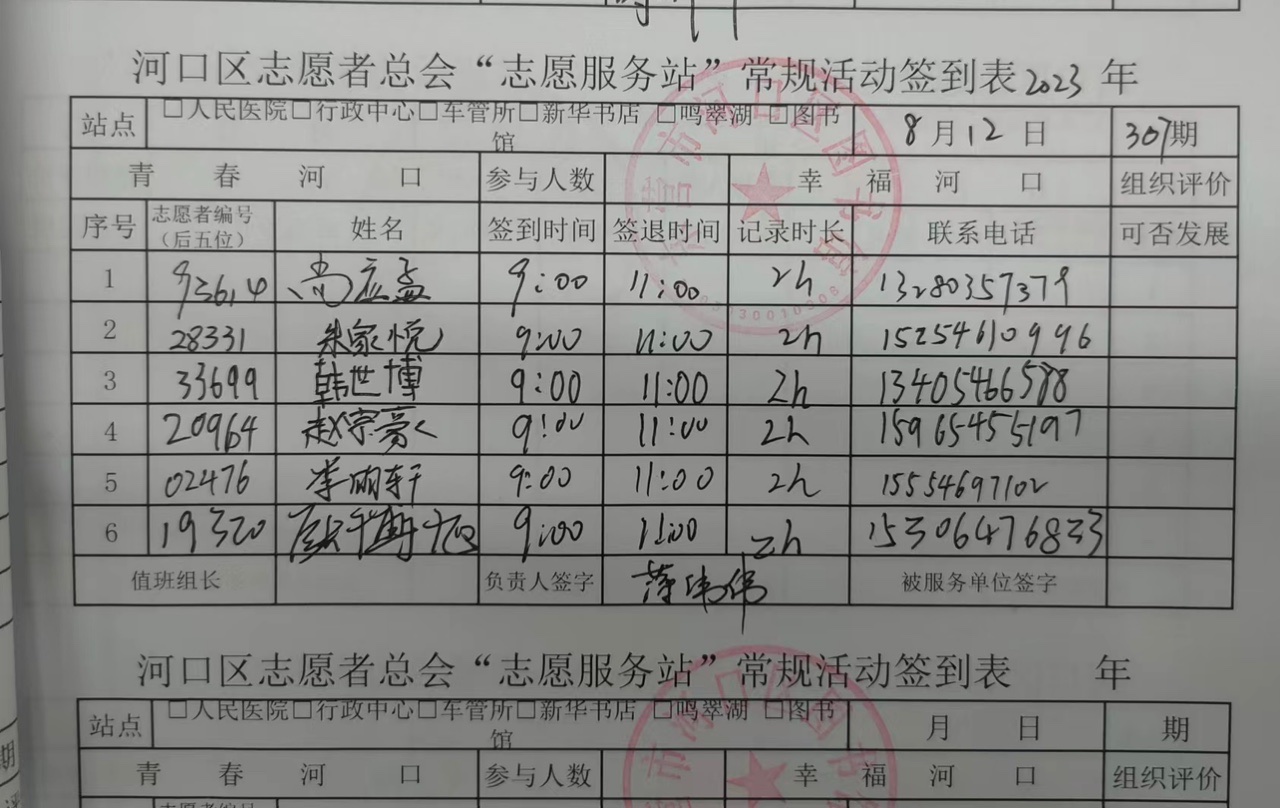 河口区志愿者总会“志愿服务站”常规活动签到表2023 年
站点 □人民医院□行政中心□车管所□新华书店 □鸣翠湖 □图书馆 8月12日 307期
青 春 河 口 参与人数 幸 福 河 口 组织评价
序号 志愿者编号（后五位） 姓名 签到时间 签退时间 记录时长 联系电话 可否发展
1 93614 尚应孟 9:00 11:00 2h 13280357379
2 28331 朱家悦 9:00 11:00 2h 15254610996
3 33699 韩世博 9:00 11:00 2h 13405466588
4 20964 赵宗豪 9:00 11:00 2h 15965455197
5 02476 李雨轩 9:00 11:00 2h 15554697102
6 19320 9:00 11:00 2h 15306476833
值班组长 负责人签字 薄纬伟 被服务单位签字
河口区志愿者总会“志愿服务站”常规活动签到表 年
站点 □人民医院□行政中心□车管所□新华书店 □鸣翠湖 □图书馆 月 日 期
青 春 河 口 参与人数 幸 福 河 口 组织评价